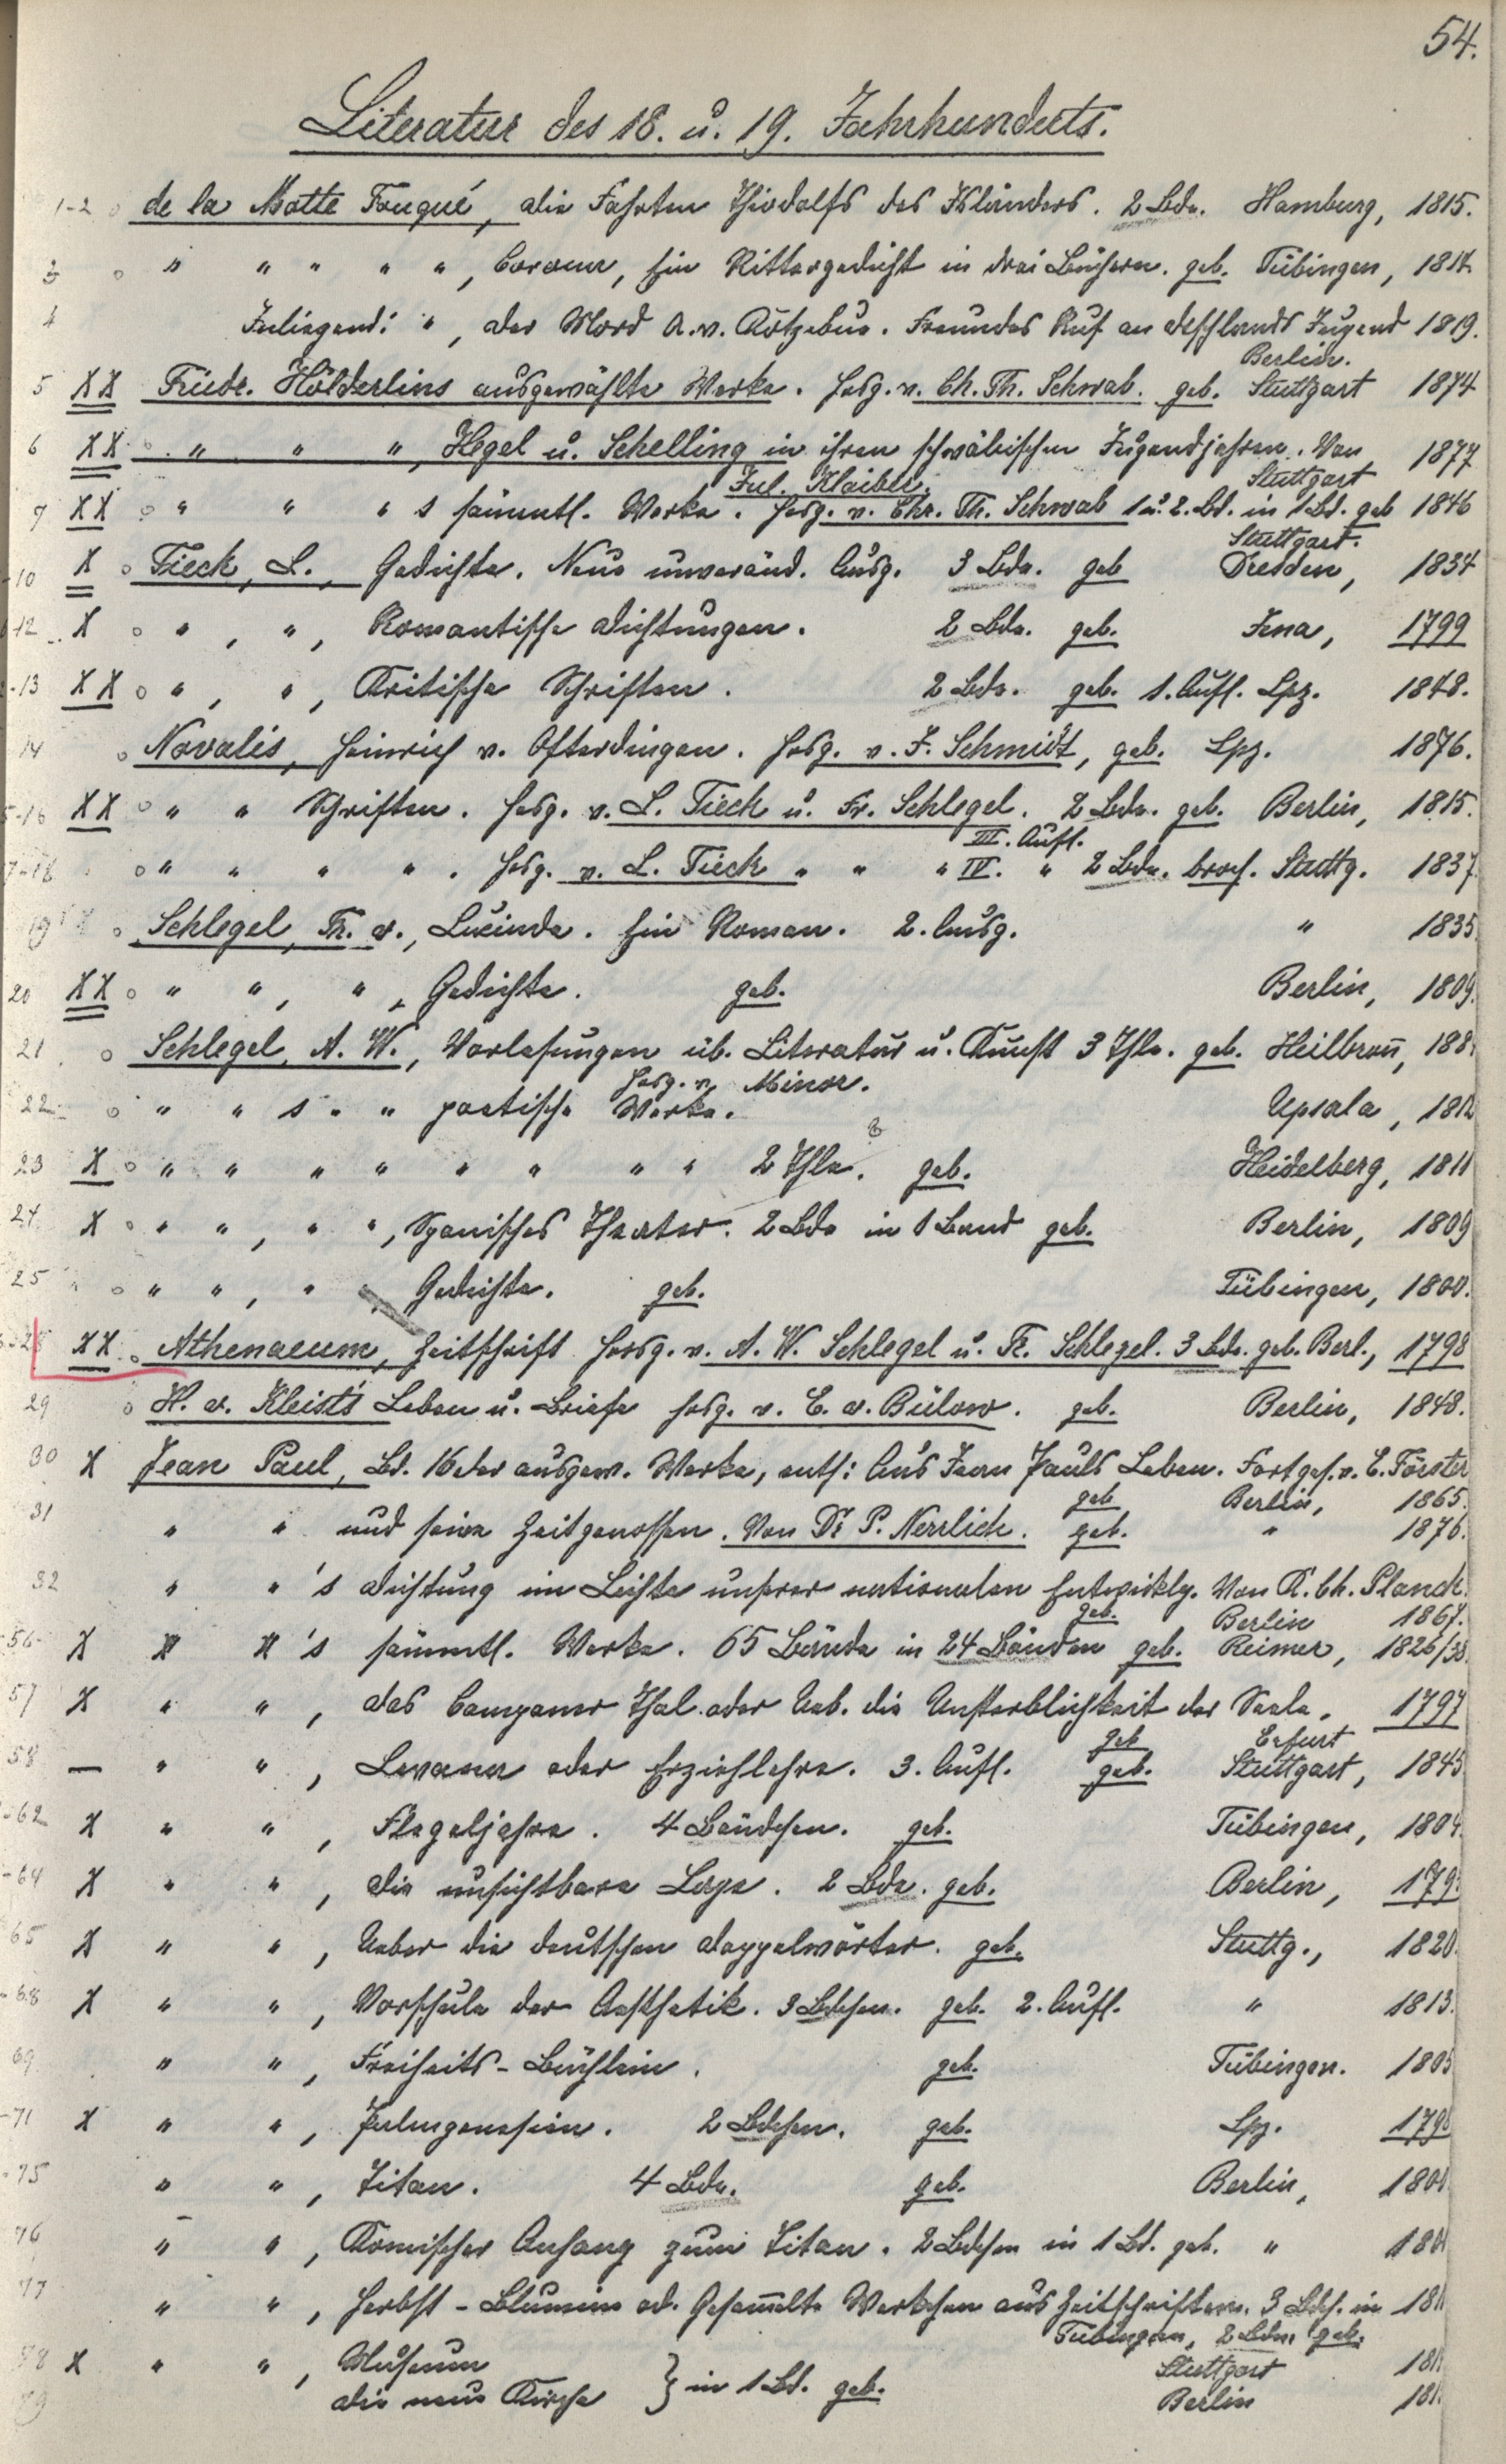 54.
Literatur des 18. u. 19. Jahrhunderts.
1-2 de la Motte Fouqué, die Fahrten Thiodolfs des Isländers. 2 Bde. Hamburg, 1815.
3 " " " " ", Corona, Ein Rittergedicht in drei Büchern. geb. Tübingen, 1814.
4 ", der Mord A. v. Kotzebue. Freundes Ruf an dtschlands Jugend 1819.
Berlin.
5 XX Friedr. Hölderlins ausgewählte Werke. Hrsg. v. Ch. Th. Schwab. geb. Stuttgart 1874
6 XX " " ", Hegel u. Schelling in ihren schwäbischen Jugendjahren. Von 1877
Jul. Klaiber. Stuttgart
7 XX " " " s sämmtl. Werke. Hrsg. v. Chr. Th. Schwab 1 u. 2. Bd. in 1 Bd. geb 1846
Stuttgart.
-10 X Tieck, L., Gedichte. Neue unveränd. Ausg. 3 Bde. geb Dresden, 1834
-12 X ", ", Romantische Dichtungen. 2 Bde. geb. Jena, 1799
-13 XX ", ", Kritische Schriften. 2 Bde. geb. 1. Aufl. Lpz. 1848.
14 Novalis, Heinrich v. Ofterdingen. Hrsg. v. J. Schmidt, geb. Lpz. 1876.
5-16 XX " " Schriften. Hrsg. v. L. Tieck u. Fr. Schlegel. 2 Bde. geb. Berlin, 1815.
III. Aufl.
7-18 " " " ". Hrsg. v. L. Tieck " " " IV. " 2 Bde. broch. Stuttg. 1837
19 Schlegel, Fr. v., Lucinde. Ein Roman. 2. Ausg. " 1835
20 XX " ", ", Gedichte. geb. Berlin, 1809.
21 Schlegel, A. W., Vorlesungen üb. Literatur u. Kunst 3 Thle. geb. Heilbronn, 188
Hrsg. v. Minor.
22 " " s " " poetische Werke. Upsala, 1812
23 X " " " " " " " " 2 Thle. geb. Heidelberg, 1811
24 X " ", " ", Spanisches Theater. 2 Bde in 1 Band geb. Berlin, 1809
25 " ", " " Gedichte. geb. Tübingen, 1800.
-28 XX Athenaeum, Zeitschrift Hrsg. v. A. W. Schlegel u. Fr. Schlegel. 3 Bde. geb. Berl., 1798
29 H. v. Kleist's Leben u. Briefe Hrsg. v. E. v. Bülow. geb. Berlin, 1848.
30 X Jean Paul, Bd. 16 der ausgew. Werke, enth: Aus Jean Pauls Leben. Fortges. v. E. Förster
geb Berlin, 1865.
31 " " und seine Zeitgenossen. Von Dr P. Nerrlich. geb. " 1876.
32 " " 's Dichtung im Lichte unserer nationalen Entwicklg. Von K. Ch. Planck.
geb. Berlin 1867.
-56 X " " 's sämmtl. Werke. 65 Bände in 24 Bänden geb. Reimer, 1826/38.
57 X " ", das Campaner Thal oder Ueb. die Unsterblichkeit der Seele. 1797
geb Erfurt
58 — " ", Levana oder Erziehlehre. 3. Aufl. geb. Stuttgart, 1845
-62 X " ", Flegeljahre. 4 Bändchen. geb. Tübingen, 1804.
-64 X " ", die unsichtbare Loge. 2 Bde. geb. Berlin, 179
65 X " ", Ueber die deutschen Doppelwörter. geb. Stuttg., 1820.
-68 X " ", Vorschule der Aesthetik. 3 Bdchen. geb. 2. Aufl. " 1813.
69 " ", Freiheits-Büchlein. geb. Tübingen. 1805
-71 X " ", Palingenesien. 2 Bdchen. geb. Lpz. 1798
-75 " ", Titan. 4 Bde. geb. Berlin, 180
76 " ", Komischer Anhang zum Titan. 2 Bdchen in 1 Bd. geb. " 180
77 " ", Herbst-Blumine od. Gesammelte Werkchen aus Zeitschriften. 3 Bdch. in 181
Tübingen, 2 Bdn. geb.
78 X " ", Museum } in 1 Bd. geb. Stuttgart 181
79 die neue Kirche Berlin 181